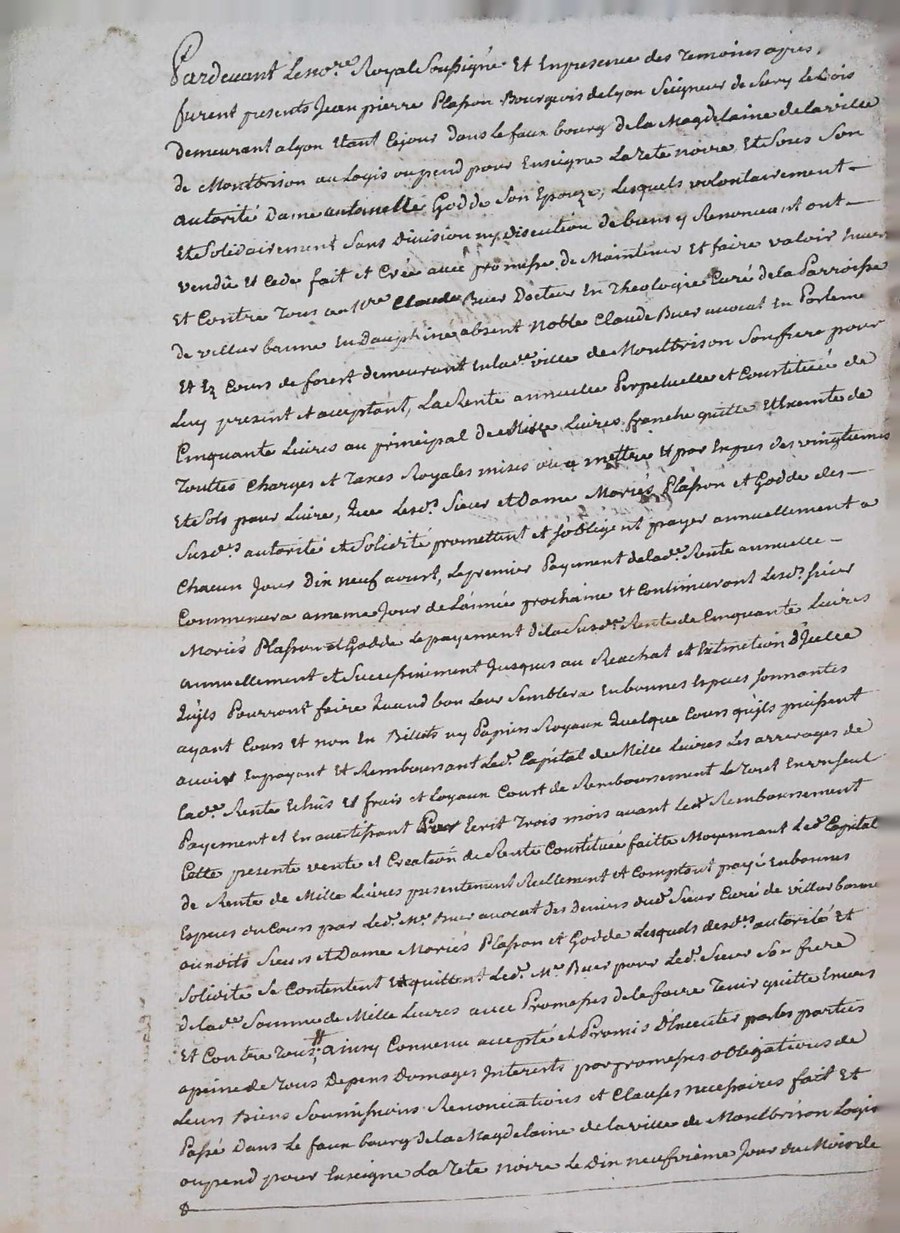 Pardevant Le no.re Royal Soussigné Et En presence des Temoins apres,
furent presents Jean pierre Plasson Bourgeois de Lyon Seigneur de Sury Le Bois
demeurant a Lyon Etant Cejour dans le faux bourg de la Magdelaine de la ville
de Montbrison au Logis ou pend pour Enseigne La Tete noire Et Sous Son
autorité Dame antoinette Godde Son Epouze, Lesquels volontairement
Et Solidairement Sans Division ny discution de biens y Renonceant ont
vendu Et Cede fait et Creé avec promesse de Maintenir Et faire valoir Envers
Et Contre Tous a Claude Buer Docteur En Theologie Curé de la Parroisse
de villurbanne En Dauphine absent Noble Claude Buer avocat En Parleme
Et Ez Cours de forest demeurant En lad.e ville de Montbrison Son frere pour
Luy present et acceptant, La Rente annuelle Perpetuelle et Constituée de
Cinquante Livres au principal de Mille Livres franche quitte Et Exempte de
Touttes Charges et Taxes Royales mises ou a mettre Et par Expres des vingtiemes
Et Sols pour Livre, Que Lesd.s Sieur et Dame Mariés Plasson et Godde des
Susd.s autorité et Solidité promettent et s'obligent payer annuellement a
Chacun Jour Dix neuf aoust, Le premier Payement de lad.e Rente annuelle
Commencera a meme Jour de L'année prochaine et Continueront Lesd.s Sieur
Mariés Plasson et Godde Le payement de la Susd.e Rente de Cinquante Livres
annuellement et Successivement Jusques au Reachat et Extinction d'Jcelle
Quils Pourront faire Quand bon Leur Semblera En bonnes Especes sonnantes
ayant Cours Et non En Billets ny Papiers Royaux Quelque Cours qu'ils puissent
avoir En payant Et Remboursant Led.t Capital de Mille Livres Les arrerages de
lad.e Rente Echûs Et frais et Loyaux Cout de Remboursement Le Tout En un seul
Payement et En avertissant Par Ecrit Trois mois avant Led.t Remboursement
Cette presente vente et Creation de Rente Constituée faitte Moyennant Led.t Capital
de Rente de Mille Livres presentement Reellement et Comptant payé En bonnes
Especes du Cours par Led.t M.re Buer avocat Des Deniers dud.t Sieur Curé de villurbanne
auxdits Sieurs et Dame Mariés Plasson et Godde Lesquels desd.es autorité Et
Solidite Se Contentent Et quittent Led.t M.re Buer pour Led.t Sieur Son frere
de lad.e Somme de Mille Livres avec Promesses de le faire Tenir quitte Envers
Et Contre Tous, ainsy Convenu accepté et Promis d'Executer par les parties
a peine de Tous Depens Domages Interests par promesses obligations de
Leurs Biens Soumissions Renonciations et Clauses necessaires fait Et
Passé Dans Le faux bourg de la Magdelaine de la ville de Montbrison Logis
ou pend pour Enseigne La Tete noire Le Dix neufvieme Jour du Mois de